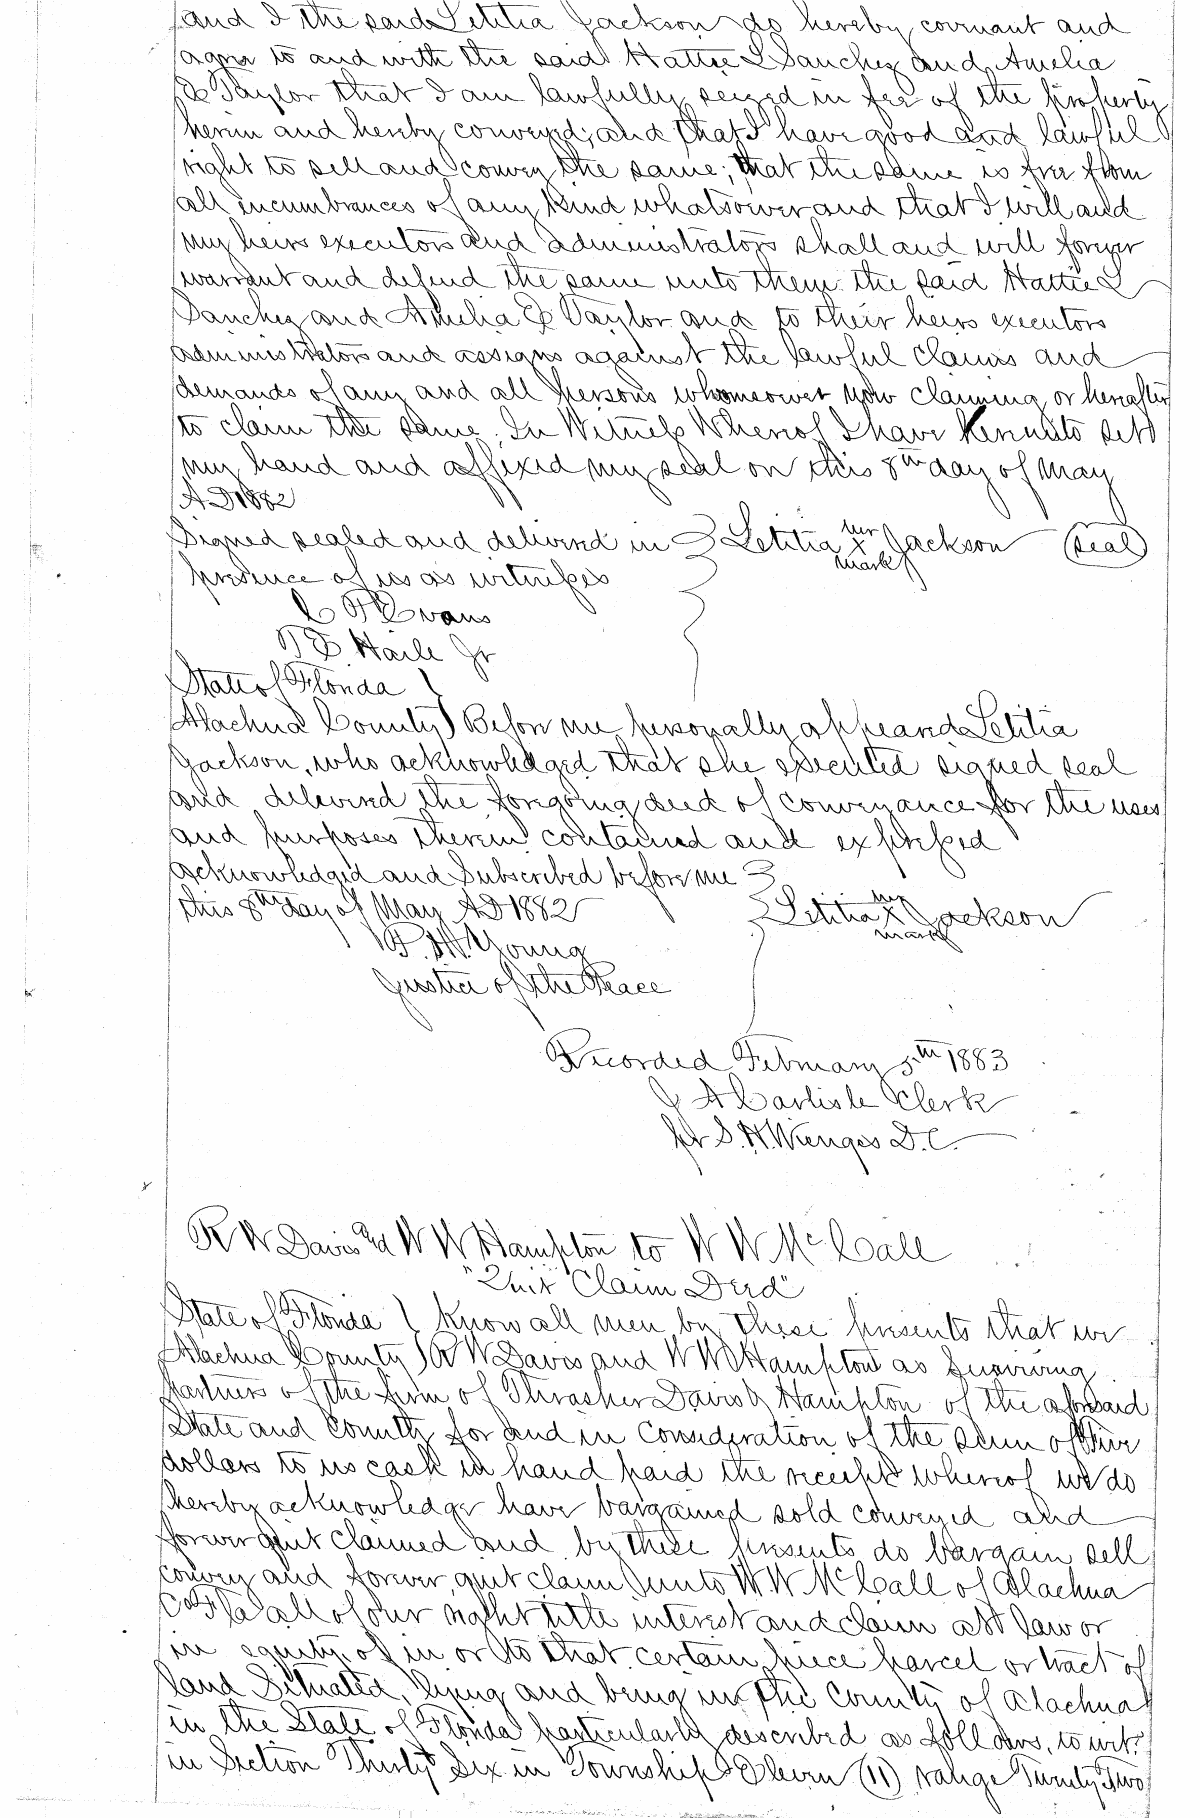 and I the said Letitia Jackson do hereby covenant and
agree to and with the said Hattie L Sanchez and Amelia
E Taylor that I am lawfully seized in fee of the property
herein and hereby conveyed; and that I have good and lawful
right to sell and convey the same; that the same is free from
all incumbrances of any kind whatsoever and that I will and
my heirs executors and administrators shall and will forever
warrant and defend the same unto them the said Hattie L
Sanchez and Amelia E Taylor and to their heirs executors
administrators and assigns against the lawful claims and
demands of any and all persons whomsoever now claiming or hereafter
to claim the same. In Witness Whereof I have hereunto set
my hand and affixed my seal on this 8th day of May
AD 1882
Signed sealed and delivered in Letitia her x mark Jackson (seal)
presence of us as witnesses
C P Evans
T E Haile Jr
State of Florida
Alachua County) Before me personally appeared Letitia
Jackson, who acknowledged that she executed signed seal
and delivered the foregoing deed of conveyance for the uses
and purposes therein contained and expressed
acknowledged and Subscribed before me
this 8th day of May AD 1882 Letitia her x mark Jackson
P. H. Young
Justice of the Peace
Recorded February 5th 1883
J A Carlisle Clerk
pr S. H. Wienges D.C.
R W Davis and W W Hampton to W W McCall
"Quit Claim Deed"
State of Florida ( Know all men by these presents that we
Alachua County ) R W Davis and W W Hampton as surviving
partners of the firm of Thrasher Davis & Hampton of the aforesaid
State and county for and in Consideration of the sum of Five
dollars to us cash in hand paid the receipt whereof we do
hereby acknowledge have bargained sold conveyed and
forever quit claimed and by these presents do bargain sell
convey and forever quit claim unto W. W McCall of Alachua
Co Fla all of our right title interest and claim at law or
in equity of in or to that certain piece parcel or tract of
land Situated, lying and being in the County of Alachua
in the State of Florida particularly described as follows, to wit:
in Section Thirty Six in Township Eleven (11) range Twenty Two